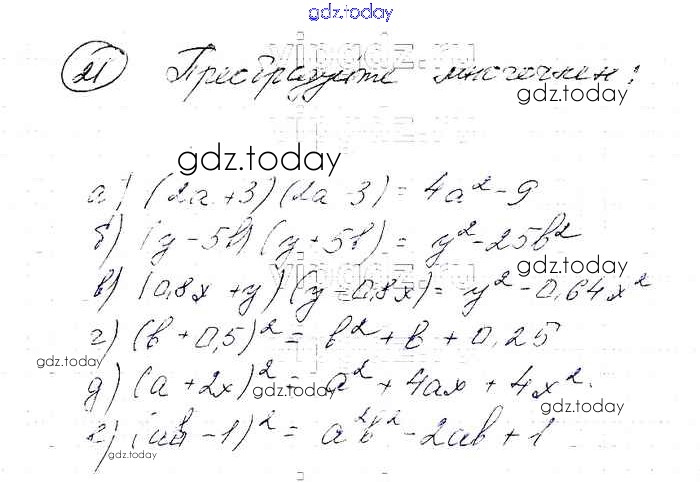 gdz.today
vipgdz.ru
21 Преобразуйте многочлен:
gdz.today
gdz.today
а) (2a + 3)(2a - 3) = 4a² - 9
б) (y - 5b)(y + 5b) = y² - 25b²
gdz.today
в) (0,8x + y)(y - 0,8x) = y² - 0,64x²
г) (b + 0,5)² = b² + b + 0,25
gdz.today
д) (a + 2x)² = a² + 4ax + 4x².
gdz.today
gdz.today
е) (ab - 1)² = a²b² - 2ab + 1
gdz.today